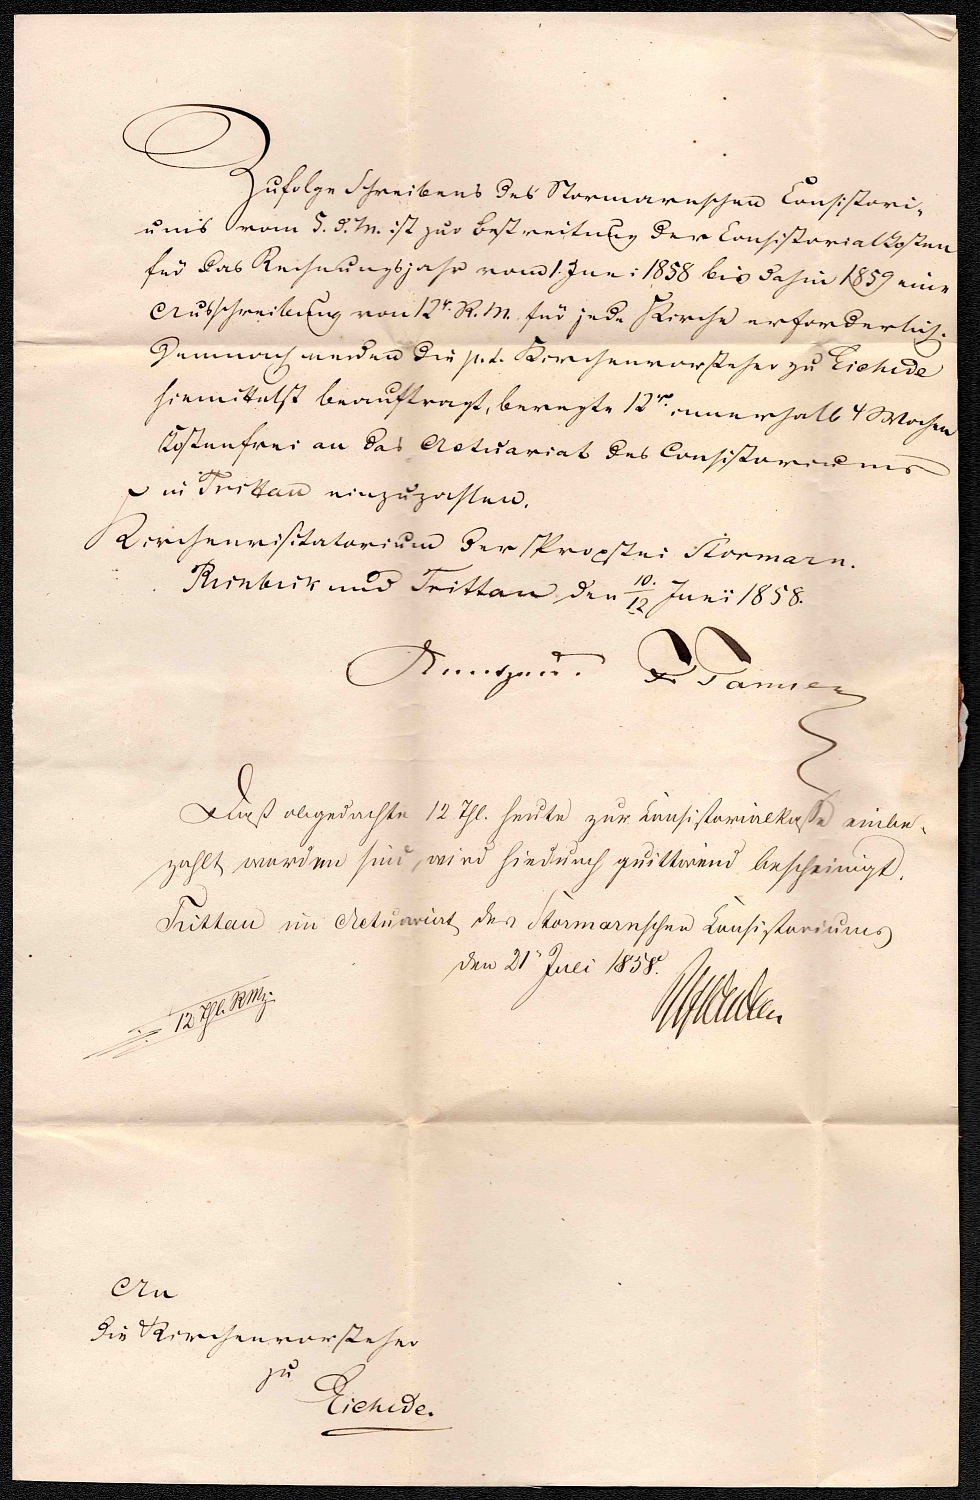 Zufolge Schreibens des Stormarnschen Consistori-
ums vom 5. d. M. ist zur Bestreitung der Consistorialkosten
für das Rechnungsjahr vom 1. Juni 1858 bis dahin 1859 eine
Ausschreibung von 12 r. R. M. für jede Kirche erforderlich.
Demnach werden die p. t. Kirchenvorsteher zu Eichede
hiemittelst beauftragt, beregte 12 innerhalb 4 Wochen
kostenfrei an das Actuariat des Consistoriums
in Trittau einzuzahlen.
Kirchenvisitatorium der Propstei Stormarn.
Reinbeck und Trittau den 10./12. Juni 1858.
Tamsen
Daß obgedachte 12 Thl. heute zur Consistorialkasse einbe-
zahlt worden sind, wird hiedurch quittirend bescheinigt.
Trittau im Actuariat des Stormarnschen Consistoriums
den 21 Juli 1858.
12 Thl. RMz.
An
die Kirchenvorsteher
zu
Eichede.